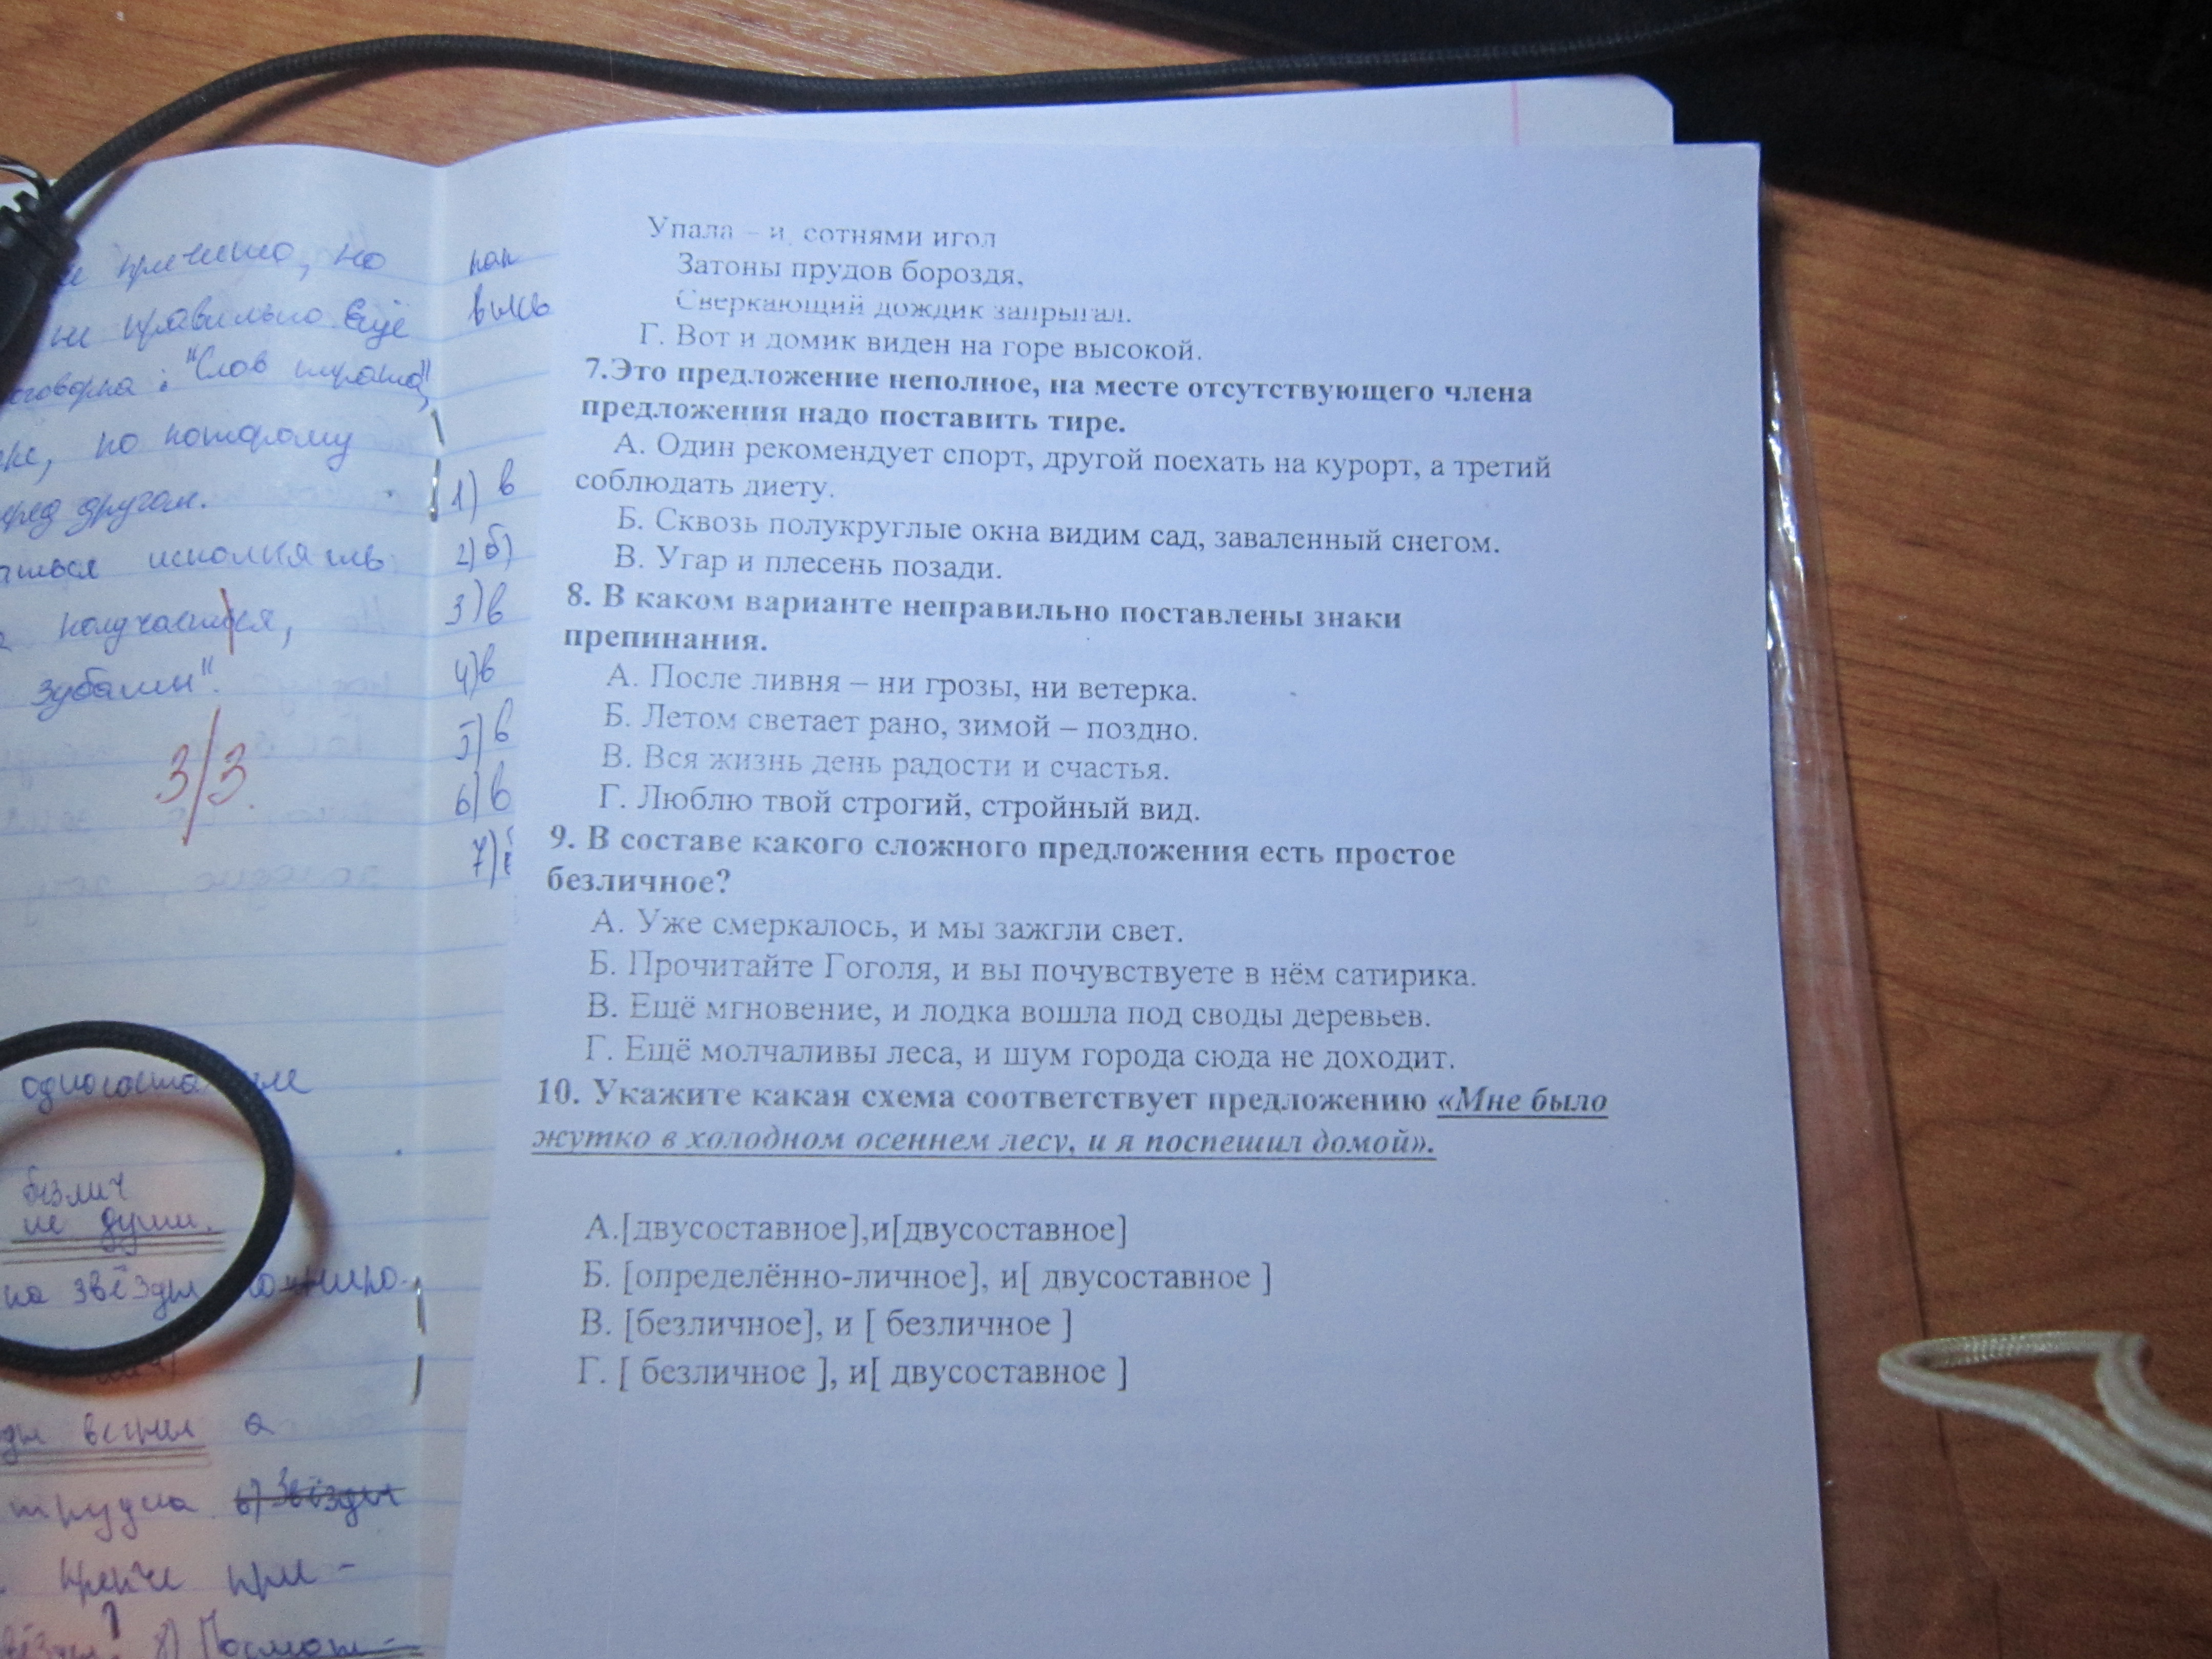 но
не правильно Ещё
: "Слов
по которому
перед другом.
исполнять
получается,
зубами".
3/3.
односоставные
безлич
не души.
на звёзды
вы
1) в
2) б)
3) в
4) в
5) в
6) в
7)
Упала – и, сотнями игол
Затоны прудов бороздя,
Сверкающий дождик запрыгал.
Г. Вот и домик виден на горе высокой.
7.Это предложение неполное, на месте отсутствующего члена
предложения надо поставить тире.
А. Один рекомендует спорт, другой поехать на курорт, а третий
соблюдать диету.
Б. Сквозь полукруглые окна видим сад, заваленный снегом.
В. Угар и плесень позади.
8. В каком варианте неправильно поставлены знаки
препинания.
А. После ливня – ни грозы, ни ветерка.
Б. Летом светает рано, зимой – поздно.
В. Вся жизнь день радости и счастья.
Г. Люблю твой строгий, стройный вид.
9. В составе какого сложного предложения есть простое
безличное?
А. Уже смеркалось, и мы зажгли свет.
Б. Прочитайте Гоголя, и вы почувствуете в нём сатирика.
В. Ещё мгновение, и лодка вошла под своды деревьев.
Г. Ещё молчаливы леса, и шум города сюда не доходит.
10. Укажите какая схема соответствует предложению «Мне было
жутко в холодном осеннем лесу, и я поспешил домой».
А.[двусоставное],и[двусоставное]
Б. [определённо-личное], и[ двусоставное ]
В. [безличное], и [ безличное ]
Г. [ безличное ], и[ двусоставное ]